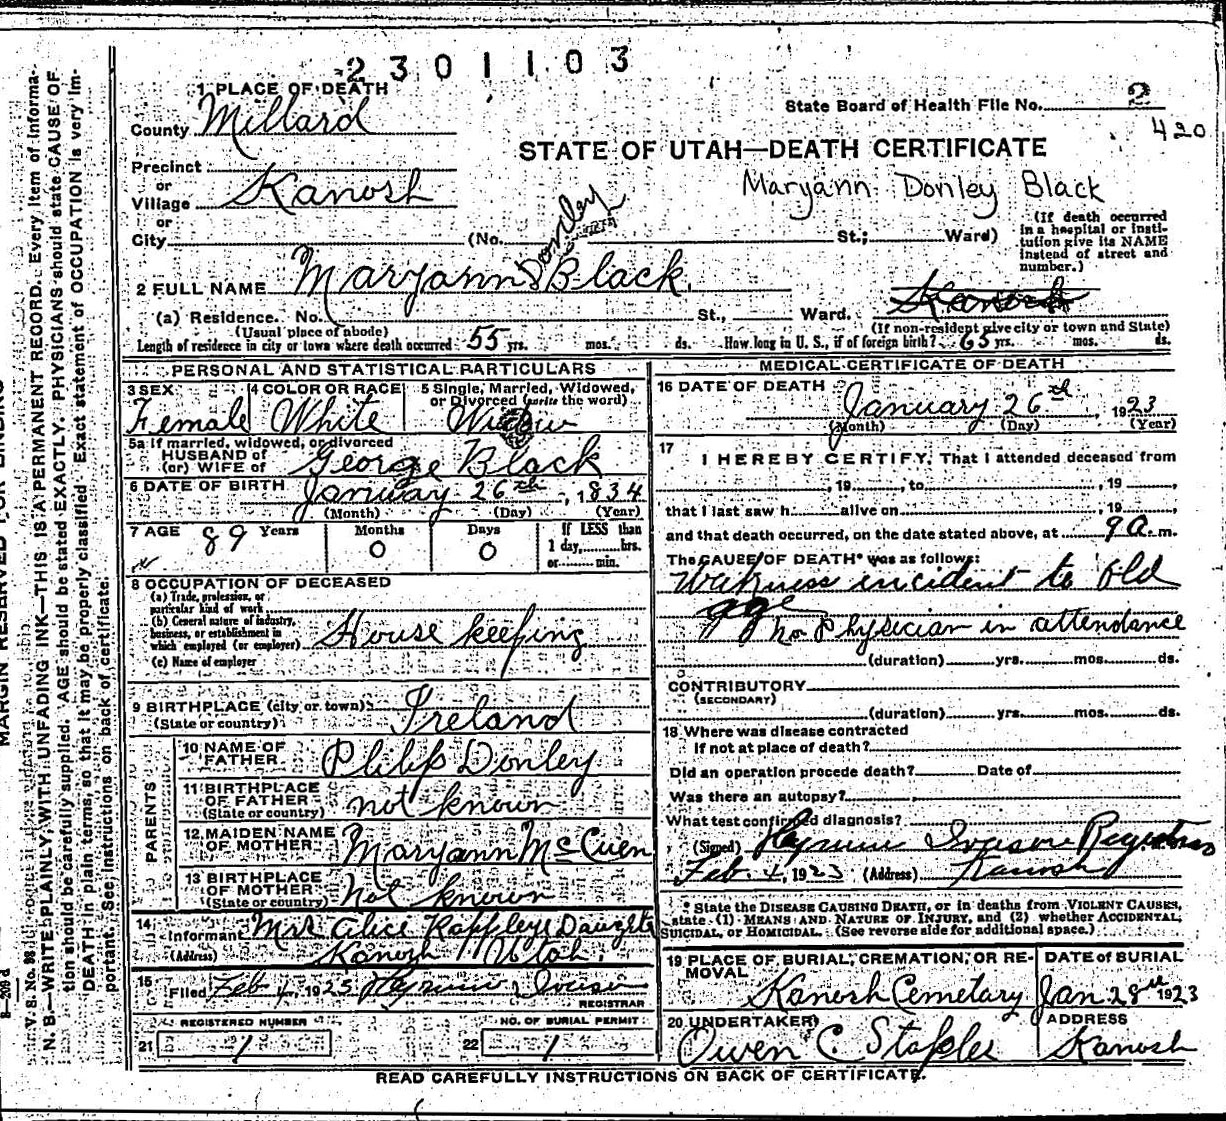 2301103
1 PLACE OF DEATH
State Board of Health File No. 2
420
County Millard
STATE OF UTAH—DEATH CERTIFICATE
Precinct
or
Village Kanosh
Maryann Donley Black
or
City (No. St.; Ward)
(If death occurred in a hospital or institution give its NAME instead of street and number.)
Donley
2 FULL NAME Maryann Black
Kanosh
(a) Residence. No. St., Ward.
(Usual place of abode)
(If non-resident give city or town and State)
Length of residence in city or town where death occurred 55 yrs. mos. ds. How long in U. S., if of foreign birth? 65 yrs. mos. ds.
PERSONAL AND STATISTICAL PARTICULARS
3 SEX
Female
4 COLOR OR RACE
White
5 Single, Married, Widowed, or Divorced (write the word)
Widow
5a If married, widowed, or divorced
HUSBAND of
(or) WIFE of George Black
6 DATE OF BIRTH January 26th, 1834
(Month) (Day) (Year)
7 AGE 89 Years
Months 0
Days 0
If LESS than
1 day, hrs.
or min.
8 OCCUPATION OF DECEASED
(a) Trade, profession, or
particular kind of work
(b) General nature of industry,
business, or establishment in
which employed (or employer) House keeping
(c) Name of employer
9 BIRTHPLACE (city or town)
(State or country) Ireland
PARENTS
10 NAME OF
FATHER Philip Donley
11 BIRTHPLACE
OF FATHER
(State or country) not known
12 MAIDEN NAME
OF MOTHER Maryann McCuen
13 BIRTHPLACE
OF MOTHER
(State or country) Not known
14
Informant Mrs Alice Rappleye Daughter
(Address) Kanosh Utah.
15
Filed Feb 4, 1923
REGISTRAR
REGISTERED NUMBER
21 1
NO. OF BURIAL PERMIT
22 1
MEDICAL CERTIFICATE OF DEATH
16 DATE OF DEATH
January 26th, 1923
(Month) (Day) (Year)
17
I HEREBY CERTIFY, That I attended deceased from
, 19, to , 19,
that I last saw h alive on , 19,
and that death occurred, on the date stated above, at 9 a. m.
The CAUSE OF DEATH* was as follows:
Weakness incident to old
age
no Physician in attendance
(duration) yrs. mos. ds.
CONTRIBUTORY
(SECONDARY)
(duration) yrs. mos. ds.
18 Where was disease contracted
if not at place of death?
Did an operation precede death? Date of
Was there an autopsy?
What test confirmed diagnosis?
(Signed) Registrar
Feb. 4, 1923 (Address) Kanosh
* State the DISEASE CAUSING DEATH, or in deaths from VIOLENT CAUSES,
state (1) MEANS AND NATURE OF INJURY, and (2) whether ACCIDENTAL,
SUICIDAL, or HOMICIDAL. (See reverse side for additional space.)
19 PLACE OF BURIAL, CREMATION, OR RE-
MOVAL
Kanosh Cemetary
DATE OF BURIAL
Jan 28th 1923
20 UNDERTAKER
Owen C. Staples
ADDRESS
Kanosh
READ CAREFULLY INSTRUCTIONS ON BACK OF CERTIFICATE.
MARGIN RESERVED FOR BINDING
N. B.—WRITE PLAINLY, WITH UNFADING INK—THIS IS A PERMANENT RECORD. Every item of informa-
tion should be carefully supplied. AGE should be stated EXACTLY. PHYSICIANS should state CAUSE OF
DEATH in plain terms, so that it may be properly classified. Exact statement of OCCUPATION is very im-
portant. See instructions on back of certificate.